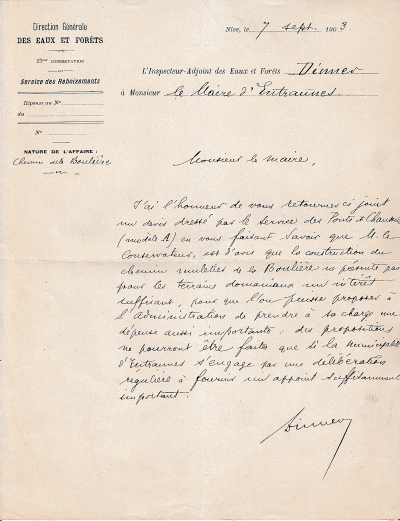 Direction Générale
DES EAUX ET FORÊTS
CONSERVATION
Service des Reboisements
Réponse au N°
du
N°
NATURE DE L'AFFAIRE :
Chemin de la Boulière
Nice, le 7 sept. 1903
L'Inspecteur-Adjoint des Eaux et Forêts Dinner
à Monsieur le Maire d'Entraunes.
Monsieur le Maire,
J'ai l'honneur de vous retourner ci joint
un devis dressé par le service des Ponts et Chaussées
(modèle A) en vous faisant savoir que M. le
Conservateur, est d'avis que la construction du
chemin muletier de la Boulière ne présente pas
pour les terrains domaniaux un intérêt
suffisant, pour que l'on puisse proposer à
l'administration de prendre à sa charge une
dépense aussi importante : des propositions
ne pourront être faites que si la municipalité
d'Entraunes s'engage par une délibération
régulière à fournir un appoint suffisamment
important.
Dinner